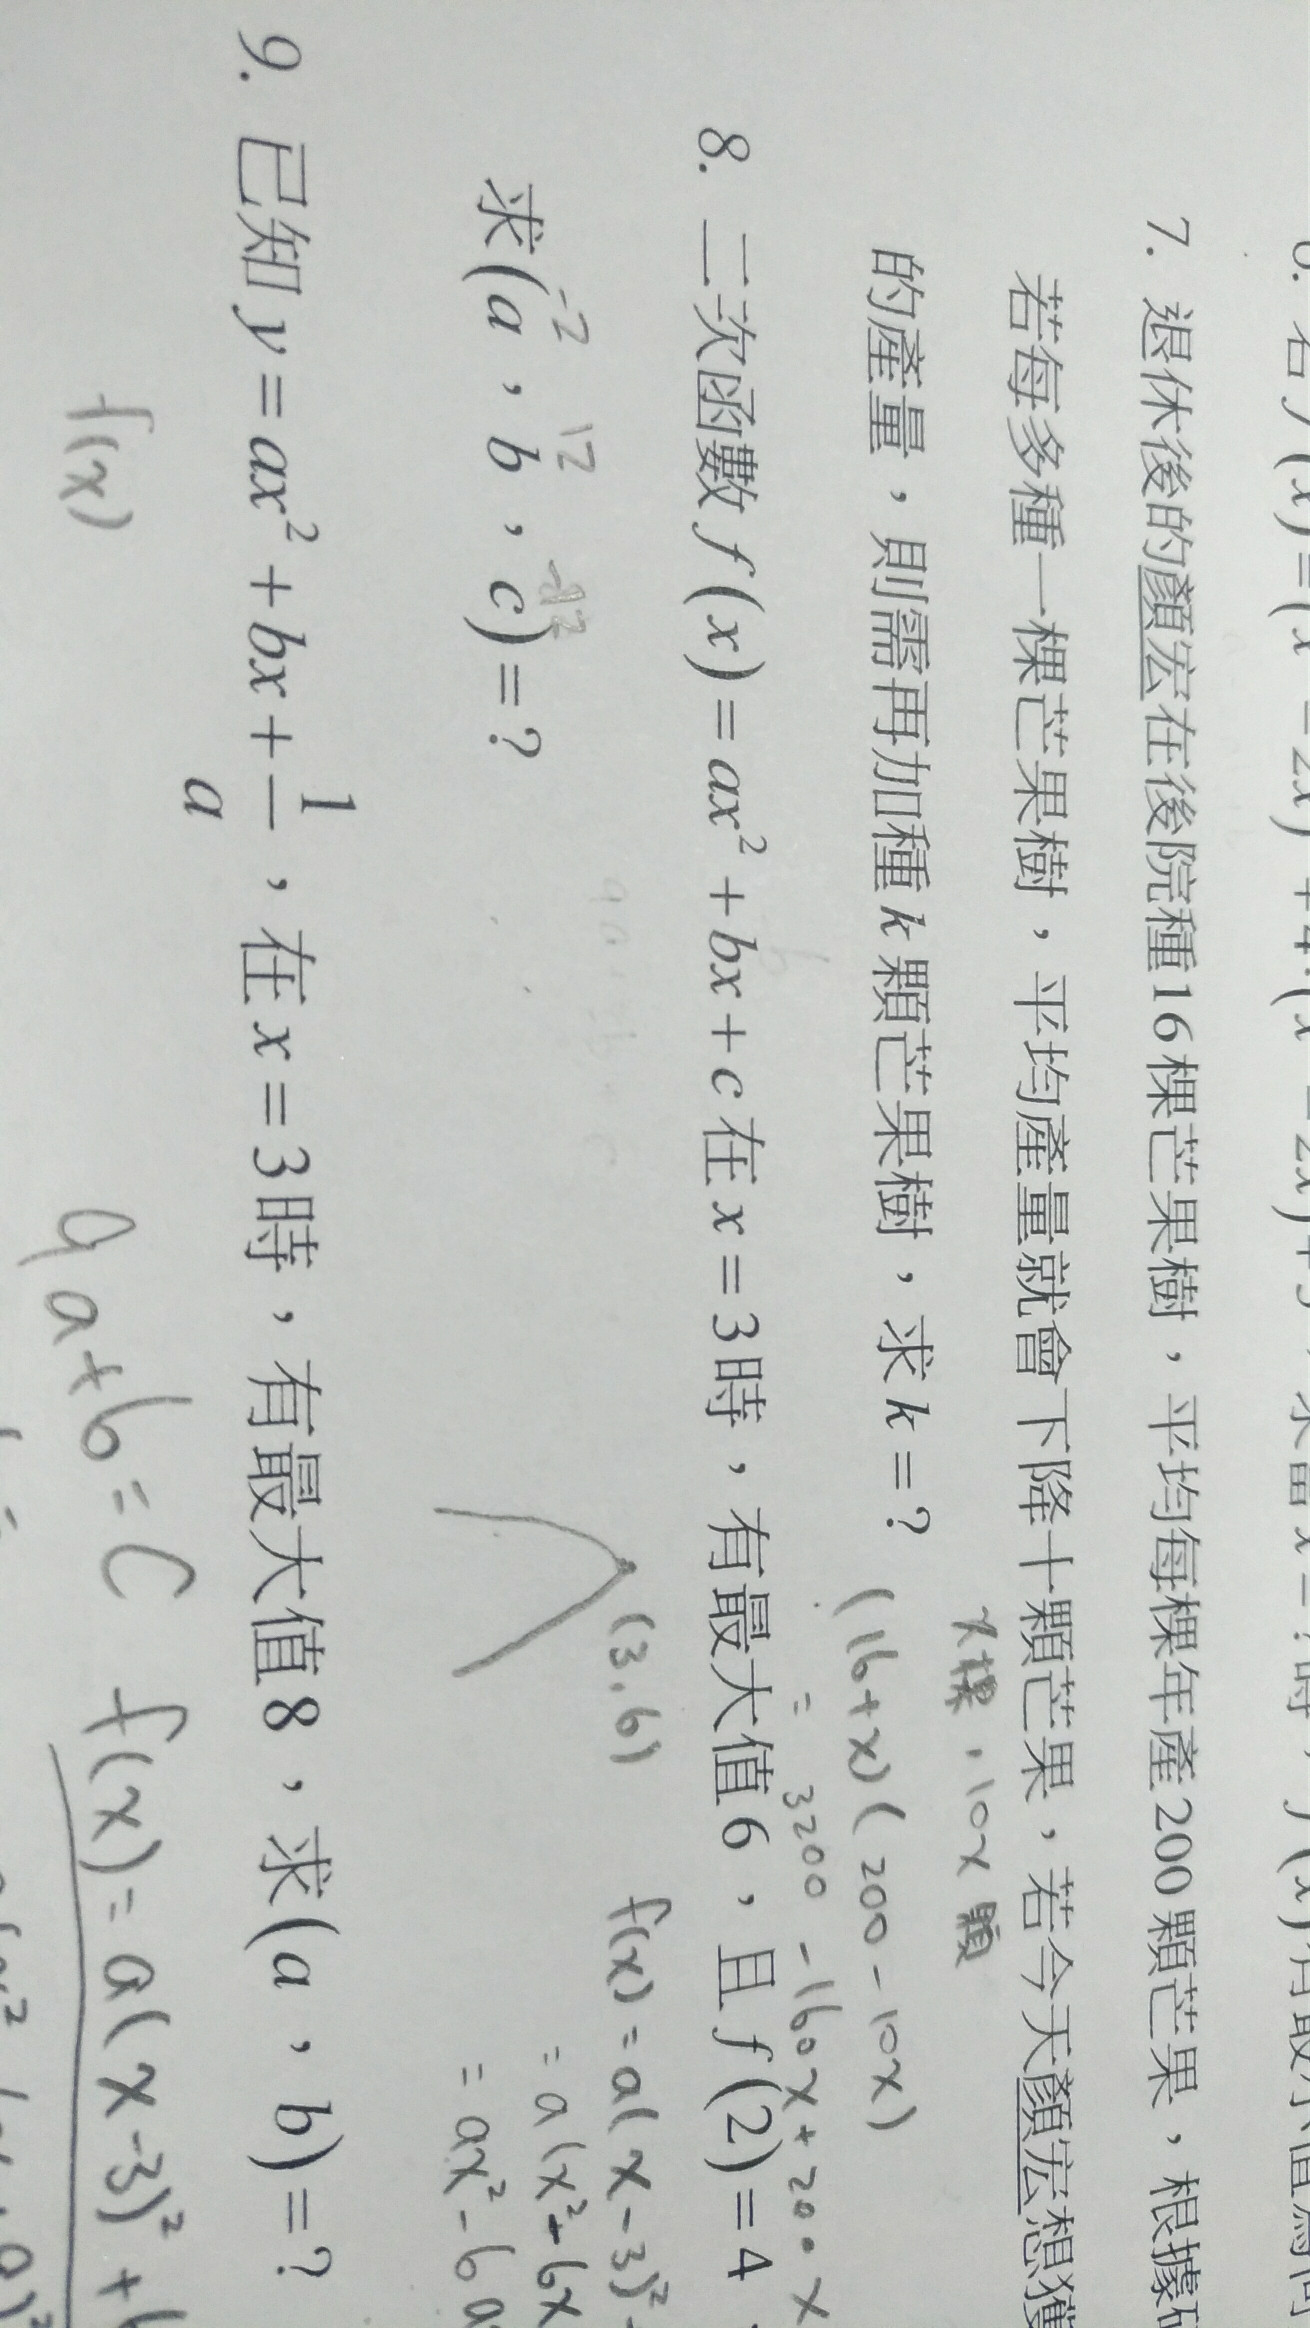 7. 退休後的顏宏在後院種16棵芒果樹，平均每棵年產200顆芒果，根據
若每多種一棵芒果樹，平均產量就會下降十顆芒果，若今天顏宏想獲
x棵，10x顆
的產量，則需再加種k顆芒果樹，求k=？ (16+x)(200-10x)
= 3200 - 160x + 200x
8. 二次函數f(x)=ax²+bx+c在x=3時，有最大值6，且f(2)=4，
-2 12 -12
求(a，b，c)=？
(3,6) f(x)=a(x-3)²
=a(x²+6x
=ax²-6a
9. 已知y=ax²+bx+1/a，在x=3時，有最大值8，求(a，b)=？
f(x) 9a+b=c f(x)=a(x-3)²+